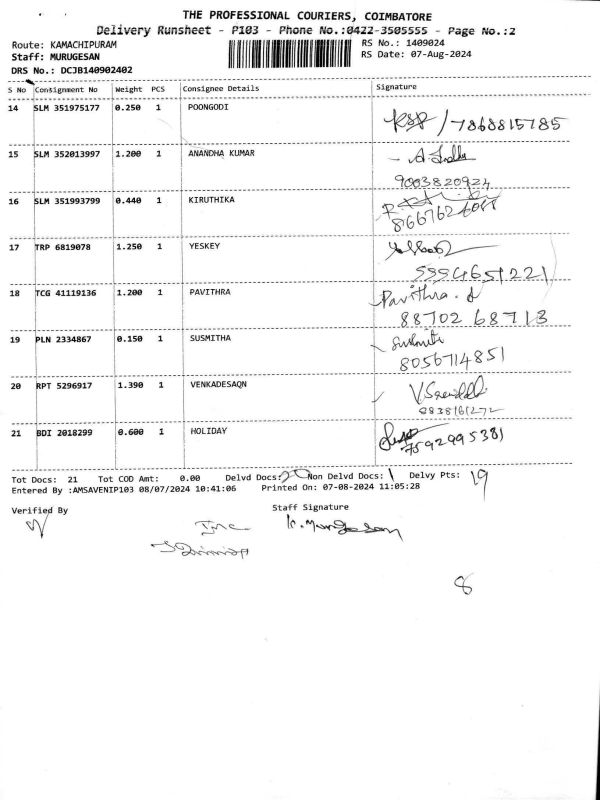 THE PROFESSIONAL COURIERS, COIMBATORE
Delivery Runsheet - P103 - Phone No.:0422-3505555 - Page No.:2
Route: KAMACHIPURAM RS No.: 1409024
Staff: MURUGESAN RS Date: 07-Aug-2024
DRS No.: DCJB140902402
S No Consignment No Weight PCS Consignee Details Signature
14 SLM 351975177 0.250 1 POONGODI
/7868815785
15 SLM 352013997 1.200 1 ANANDHA KUMAR
9003820924
16 SLM 351993799 0.440 1 KIRUTHIKA
17 TRP 6819078 1.250 1 YESKEY
18 TCG 41119136 1.200 1 PAVITHRA Pavithra.
88702 68713
19 PLN 2334867 0.150 1 SUSMITHA
8056714851
20 RPT 5296917 1.390 1 VENKADESAQN
21 BDI 2018299 0.600 1 HOLIDAY
7592995381
Tot Docs: 21 Tot COD Amt: 0.00 Delvd Docs: 20 Non Delvd Docs: 1 Delvy Pts: 19
Entered By :AMSAVENIP103 08/07/2024 10:41:06 Printed On: 07-08-2024 11:05:28
Verified By Staff Signature
K. Murugesan
8